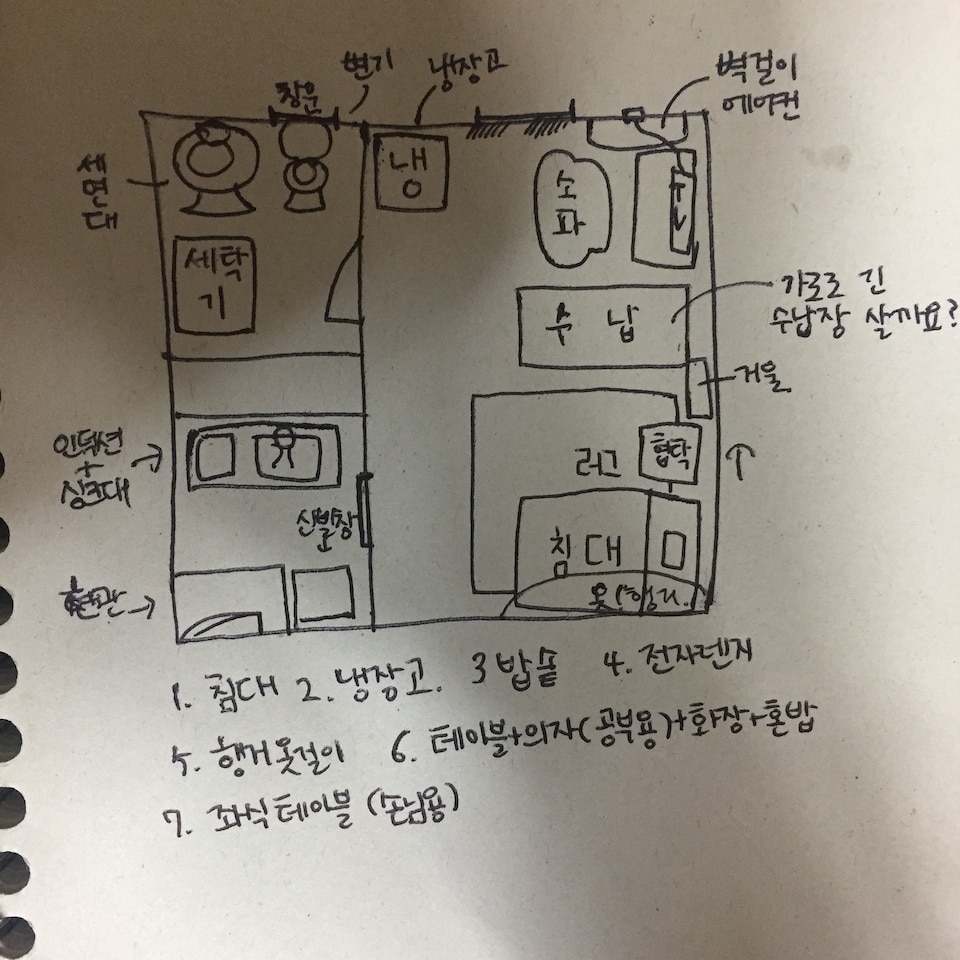 변기
냉장고
창문
벽걸이
에어컨
세
면
대
냉
소
파
TV
세탁
기
가로로 긴
수납장 살까요?
수 납
거울
인덕션
+
싱크대
러그
협탁
신발장
침대
현관
옷(행거)
1. 침대 2. 냉장고. 3 밥솥 4. 전자렌지
5. 행거옷걸이 6. 테이블+의자(공부용)+화장+혼밥
7. 좌식테이블 (손님용)